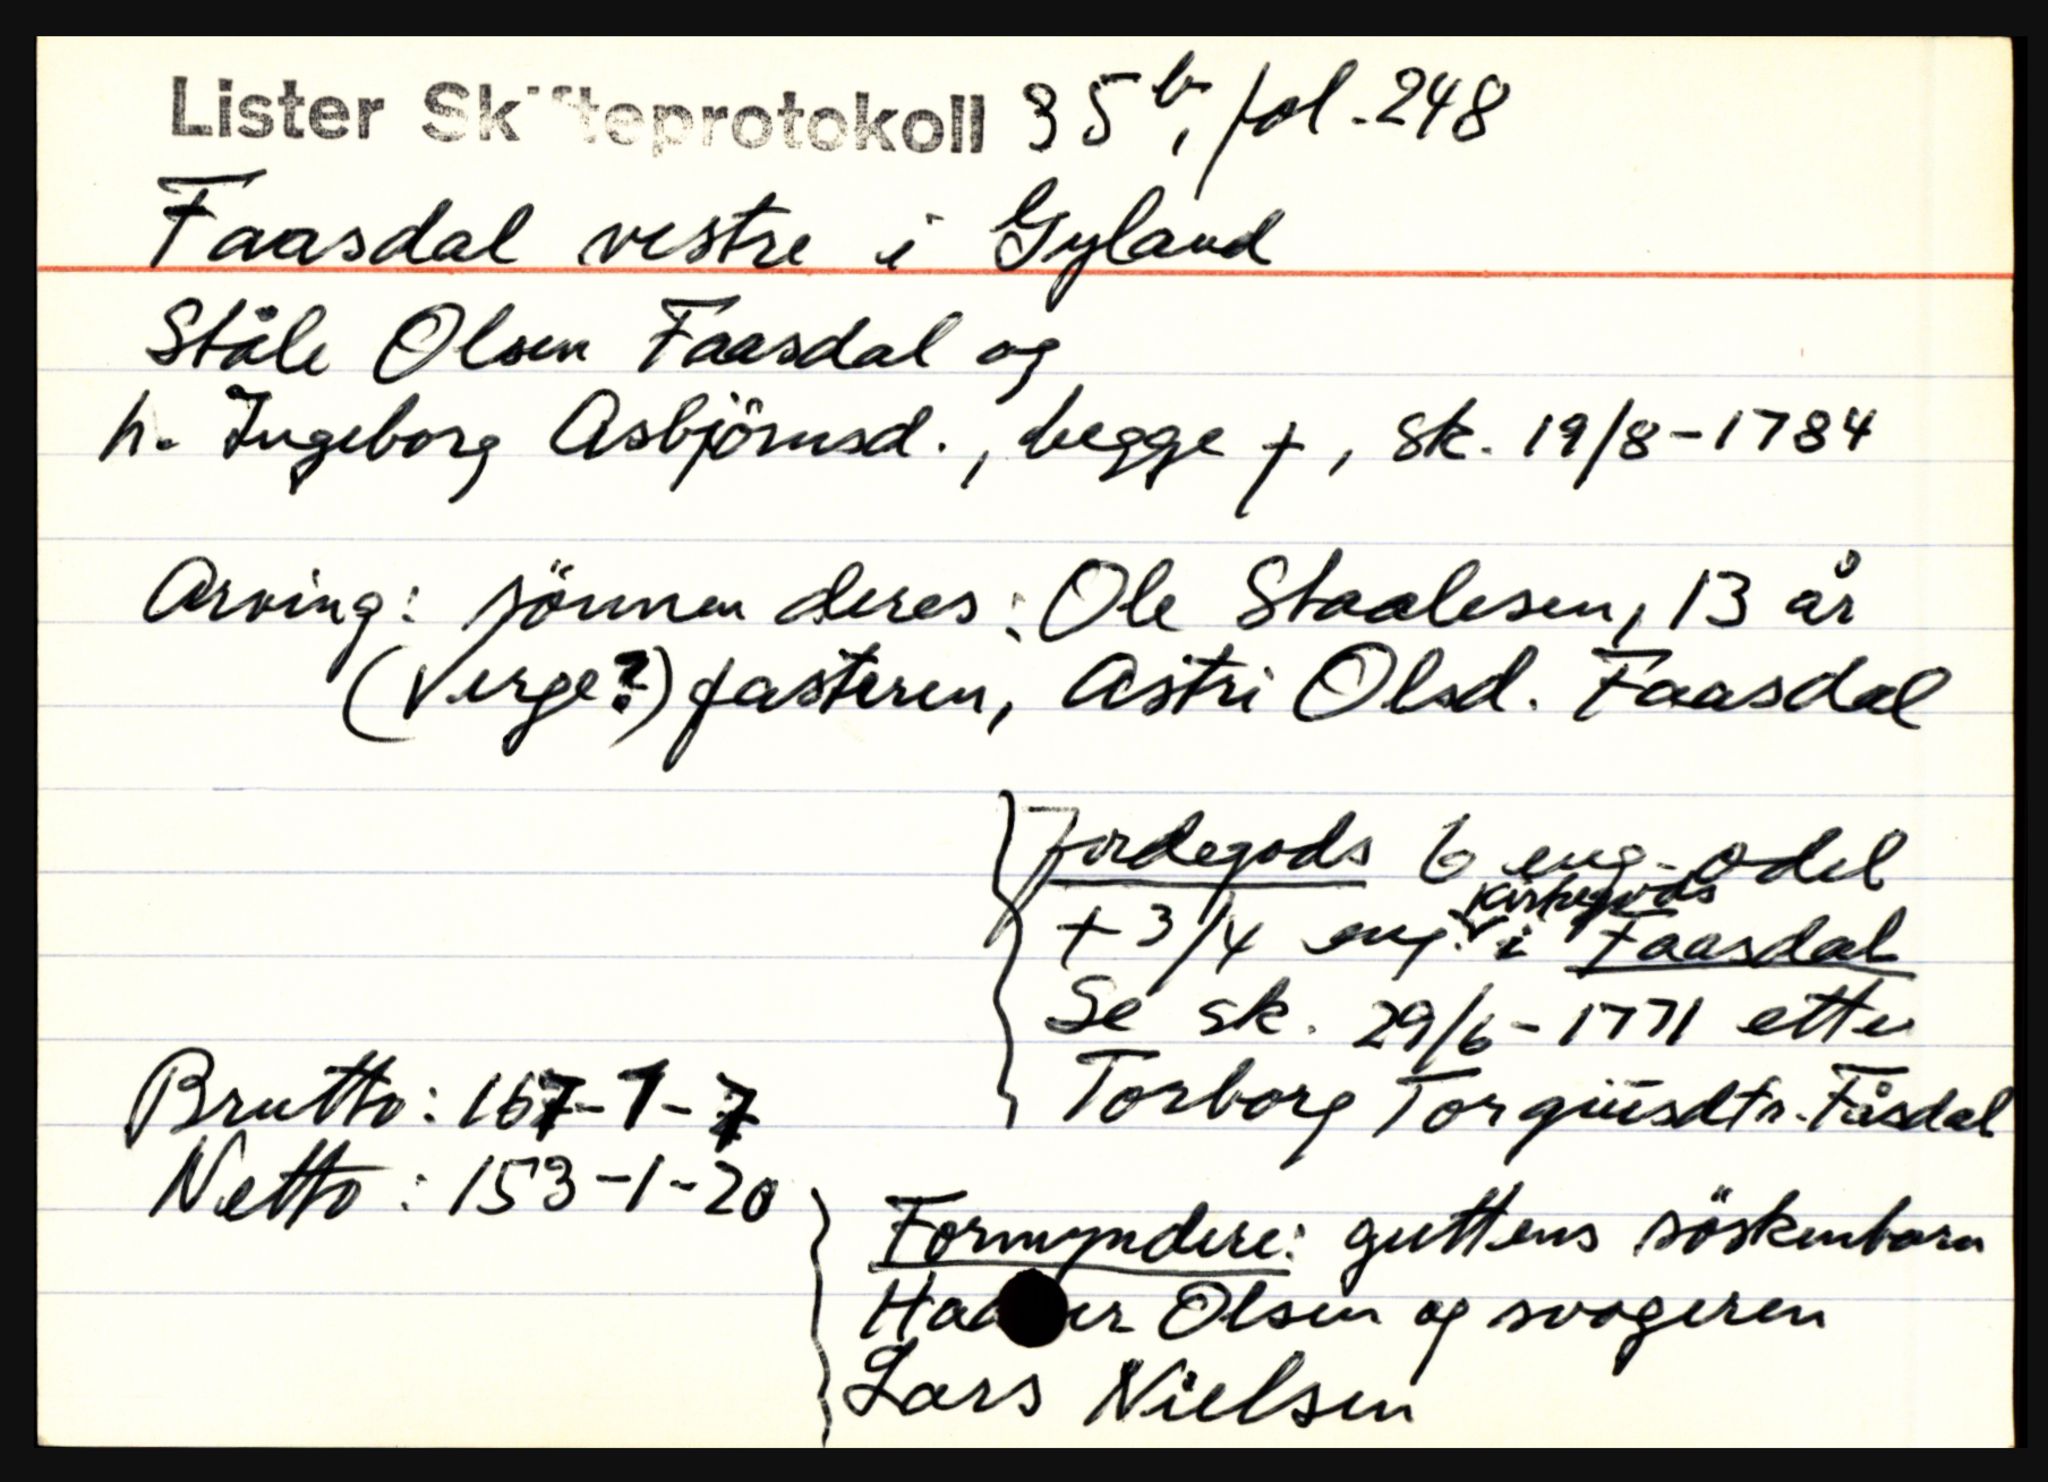 Lister Skifteprotokoll 35b, fol. 248
Faasdal vestre i Gyland
Ståle Olsen Faasdal og
h. Ingeborg Asbjörnsd., begge †, sk. 19/8-1784
Arving: sönnen deres: Ole Staalesen, 13 år
(Verge?) fasteren, Astri Olsd. Faasdal
Jordegods 6 eng. odel
+ 3/4 eng. kirkegods i Faasdal
Se sk. 29/6-1771 etter
Torborg Torgiusdtr. Fåsdal
Brutto: 167-1-7
Netto: 153-1-20
Formyndere: guttens söskenbarn
Olsen og svogeren
Lars Nielsen